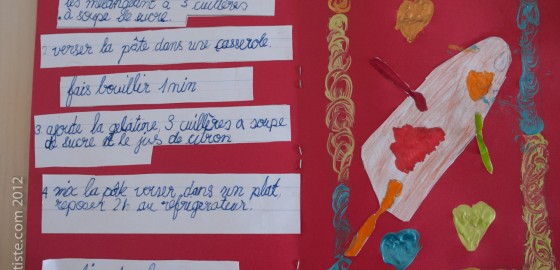 les mélangeant à 3 cuillères
à soupe de sucre.
2 verser la pâte dans une casserole.
fais bouillir 1 min
3 ajoute la gélatine, 3 cuillères a soupe
de sucre et le jus de citron
4 mix la pâte verser dans un plat
reposer 2h au réfrigerateur.
tiste.com 2012